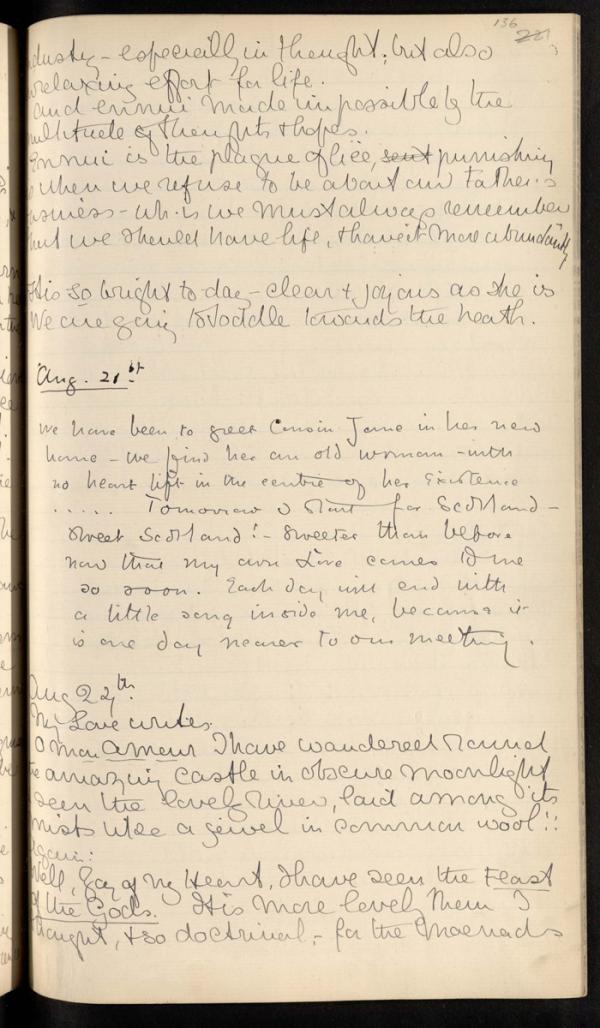 136
221
industry – especially in thought; but also
relaxing effort for life.
and ennui made impossible by the
multitude of thoughts & hopes.
Ennui is the plague of lice, sent punishing
when we refuse to be about our Father's
business – wh. is we must always remember
that we should have life, & have it more abundantly
It is so bright to-day – clear & joyous as she is
We are going to toddle towards the heath.
Aug. 21st
We have been to greet Cousin Jane in her new
home – we find her an old woman – with
no heart lift in the centre of her Existence
..... Tomorrow I start for Scotland –
Sweet Scotland! – sweeter than before
now that my own Love comes to me
so soon. Each day will end with
a little song inside me, because it
is one day nearer to our meeting.
Aug 22th
My Love writes.
O mon amour I have wandered round
the amazing castle in obscure moonlight
seen the level river, laid among its
mists like a jewel in common wool!!
Again:
Well, Joy of My Heart, I have seen the Feast
of the Gods. It is more level then I
thought, & so doctrinal, – for the Maenads